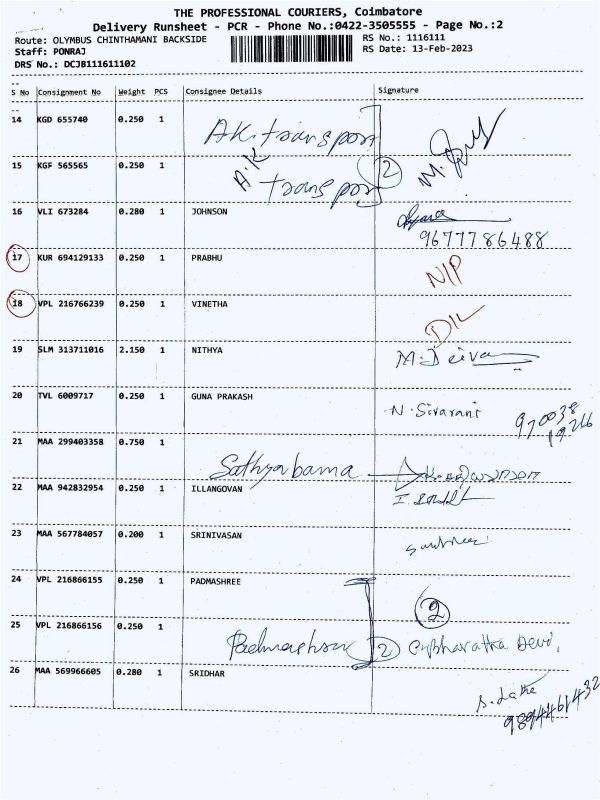 THE PROFESSIONAL COURIERS, Coimbatore
Delivery Runsheet - PCR - Phone No.:0422-3505555 - Page No.:2
Route: OLYMBUS CHINTHAMANI BACKSIDE
RS No.: 1116111
Staff: PONRAJ
RS Date: 13-Feb-2023
DRS No.: DCJB111611102
S No Consignment No Weight PCS Consignee Details Signature
14 KGD 655740 0.250 1 AK transport
15 KGF 565565 0.250 1 A.K transport 2 M.
16 VLI 673284 0.280 1 JOHNSON
9677786488
17 KUR 694129133 0.250 1 PRABHU N/P
18 VPL 216766239 0.250 1 VINETHA D/L
19 SLM 313711016 2.150 1 NITHYA M.Deiva
20 TVL 6009717 0.250 1 GUNA PRAKASH N. Sivarani 970038
19266
21 MAA 299403358 0.750 1 Sathyabama
22 MAA 942832954 0.250 1 ILLANGOVAN
23 MAA 567784057 0.200 1 SRINIVASAN
24 VPL 216866155 0.250 1 PADMASHREE 2
25 VPL 216866156 0.250 1 Padmashree 2 Bharatha Devi
26 MAA 569966605 0.280 1 SRIDHAR S. Latha
9894461432